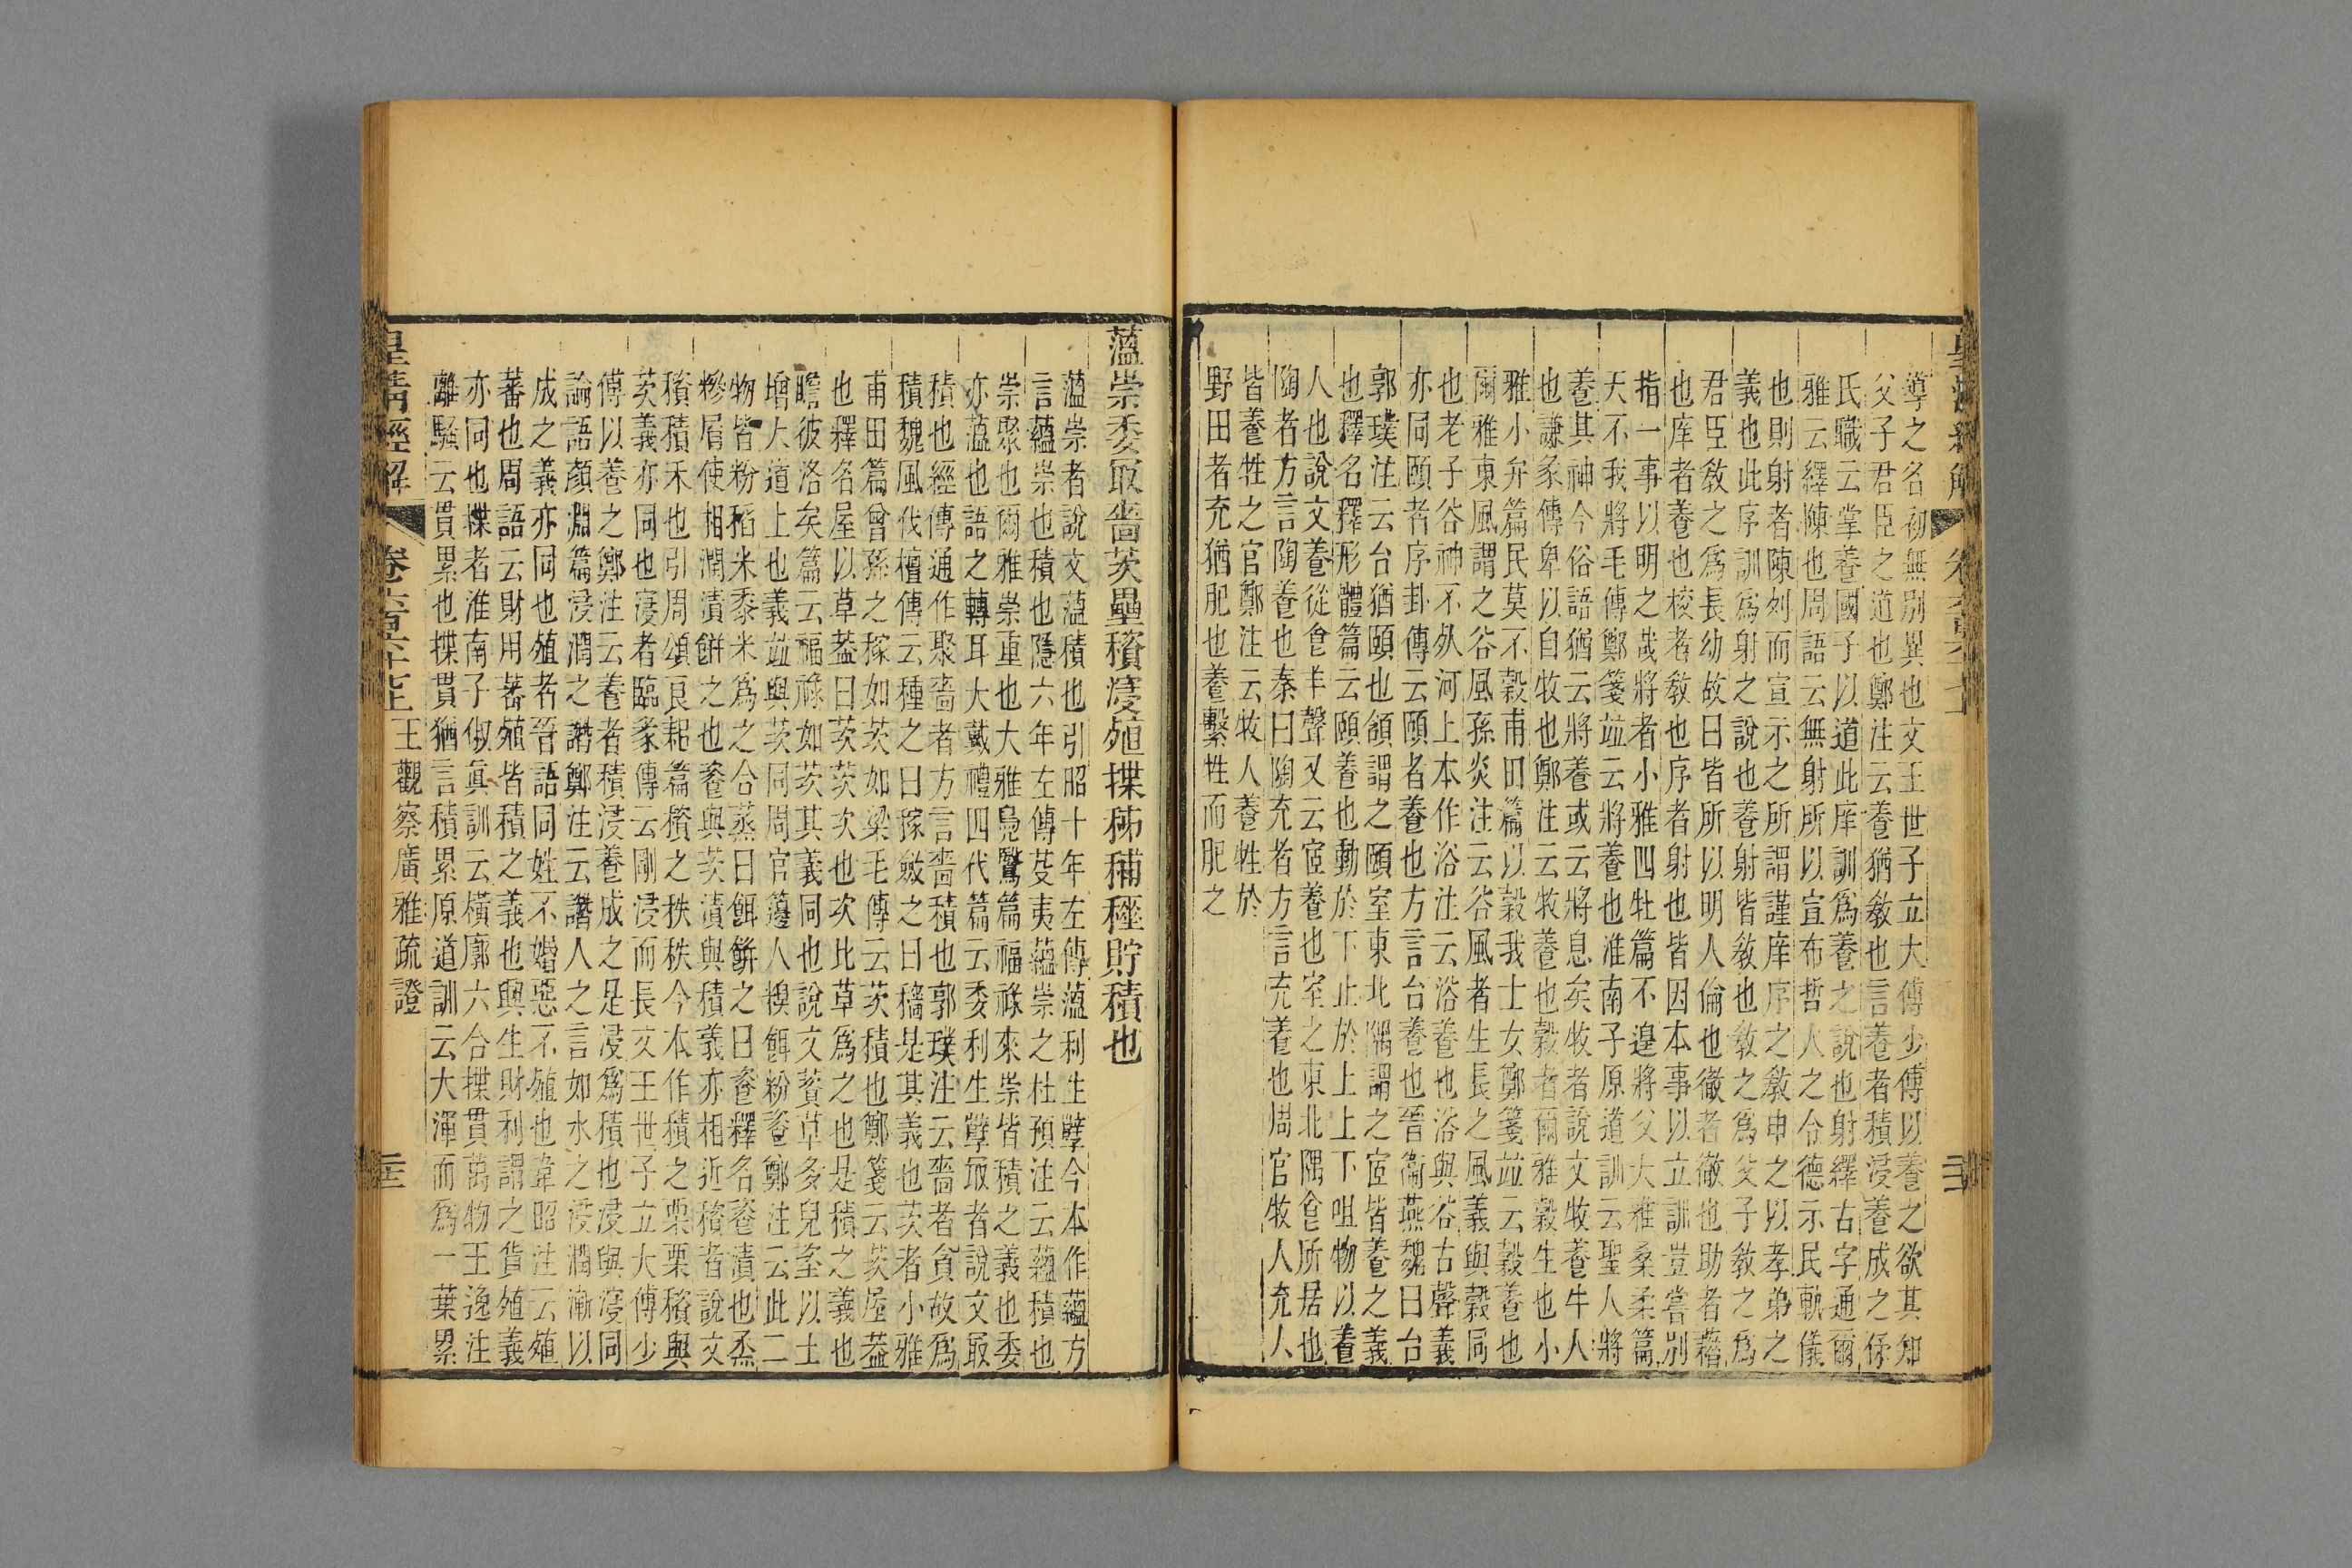 皇清經解
導之名初無別異也文王世子立大傅少傅以養之欲其知
父子君臣之道也鄭注云養猶敎也言養者積浸養成之保
氏職云掌養國子以道此庠訓爲養之說也射繹古字通爾
雅云繹陳也周語云無射所以宣布哲人之令德示民軌儀
也則射者陳列而宣示之所謂謹庠序之敎申之以孝弟之
義也此序訓爲射之說也養射皆敎也敎之爲父子敎之爲
君臣敎之爲長幼故曰皆所以明人倫也徹者徹也助者藉
也庠者養也校者敎也序者射也皆因本事以立訓豈嘗別
指一事以明之哉將者小雅四牡篇不遑將父大雅桑柔篇
天不我將毛傳鄭箋竝云將養也淮南子原道訓云聖人將
養其神今俗語猶云將養或云將息矣牧者說文牧養牛人
也謙彖傳卑以自牧也鄭注云牧養也穀者爾雅穀生也小
雅小弁篇民莫不穀甫田篇以穀我士女鄭箋竝云穀養也
爾雅東風謂之谷風孫炎注云谷風者生長之風義與穀同
也老子谷神不死河上本作浴注云浴養也浴與谷古聲義
亦同頤者序卦傳云頤者養也方言台養也晉衞燕魏曰台
郭璞注云台猶頤也頷謂之頤室東北隅謂之宧皆養之義
也釋名釋形體篇云頤養也動於下止於上上下咀物以養
人也說文養從食羊聲又云宧養也室之東北隅食所居也
陶者方言陶養也秦曰陶充者方言充養也周官牧人充人
皆養牲之官鄭注云牧人養牲於
野田者充猶肥也養繫牲而肥之
薀崇委冣嗇茨壘穧寖殖揲秭稫稑貯積也
薀崇者說文薀積也引昭十年左傳薀利生孼今本作蘊方
言蘊崇也積也隱六年左傳芟夷蘊崇之杜預注云蘊積也
崇聚也爾雅崇重也大雅鳧鷖篇福祿來崇皆積之義也委
亦薀也語之轉耳大戴禮四代篇云委利生孼冣者說文冣
積也經傳通作聚嗇者方言嗇積也郭璞注云嗇者貪故爲
積魏風伐檀傳云種之曰稼斂之曰穡是其義也茨者小雅
甫田篇曾孫之稼如茨如梁毛傳云茨積也鄭箋云茨屋蓋
也釋名屋以草蓋曰茨茨次也次比草爲之也是積之義也
瞻彼洛矣篇云福祿如茨其義同也說文薋草多皃垐以土
增大道上也義竝與茨同周官籩人糗餌粉餈鄭注云此二
物皆粉稻米黍米爲之合蒸曰餌餅之曰餈釋名餈漬也烝
糝屑使相潤漬餅之也餈與茨漬與積義亦相近穧者說文
穧積禾也引周頌良耜篇穧之秩秩今本作積之栗栗穧與
茨義亦同也寖者臨彖傳云剛浸而長文王世子立大傅少
傅以養之鄭注云養者積浸養成之是浸爲積也浸與寖同
論語顏淵篇浸潤之譖鄭注云譖人之言如水之浸潤漸以
成之義亦同也殖者晉語同姓不婚惡不殖也韋昭注云殖
蕃也周語云財用蕃殖皆積之義也與生財利謂之貨殖義
亦同也揲者淮南子俶眞訓云橫廓六合揲貫萬物王逸注
離騷云貫累也揲貫猶言積累原道訓云大渾而爲一葉累
皇清經解 卷六百六十七上 王觀察廣雅疏證 三